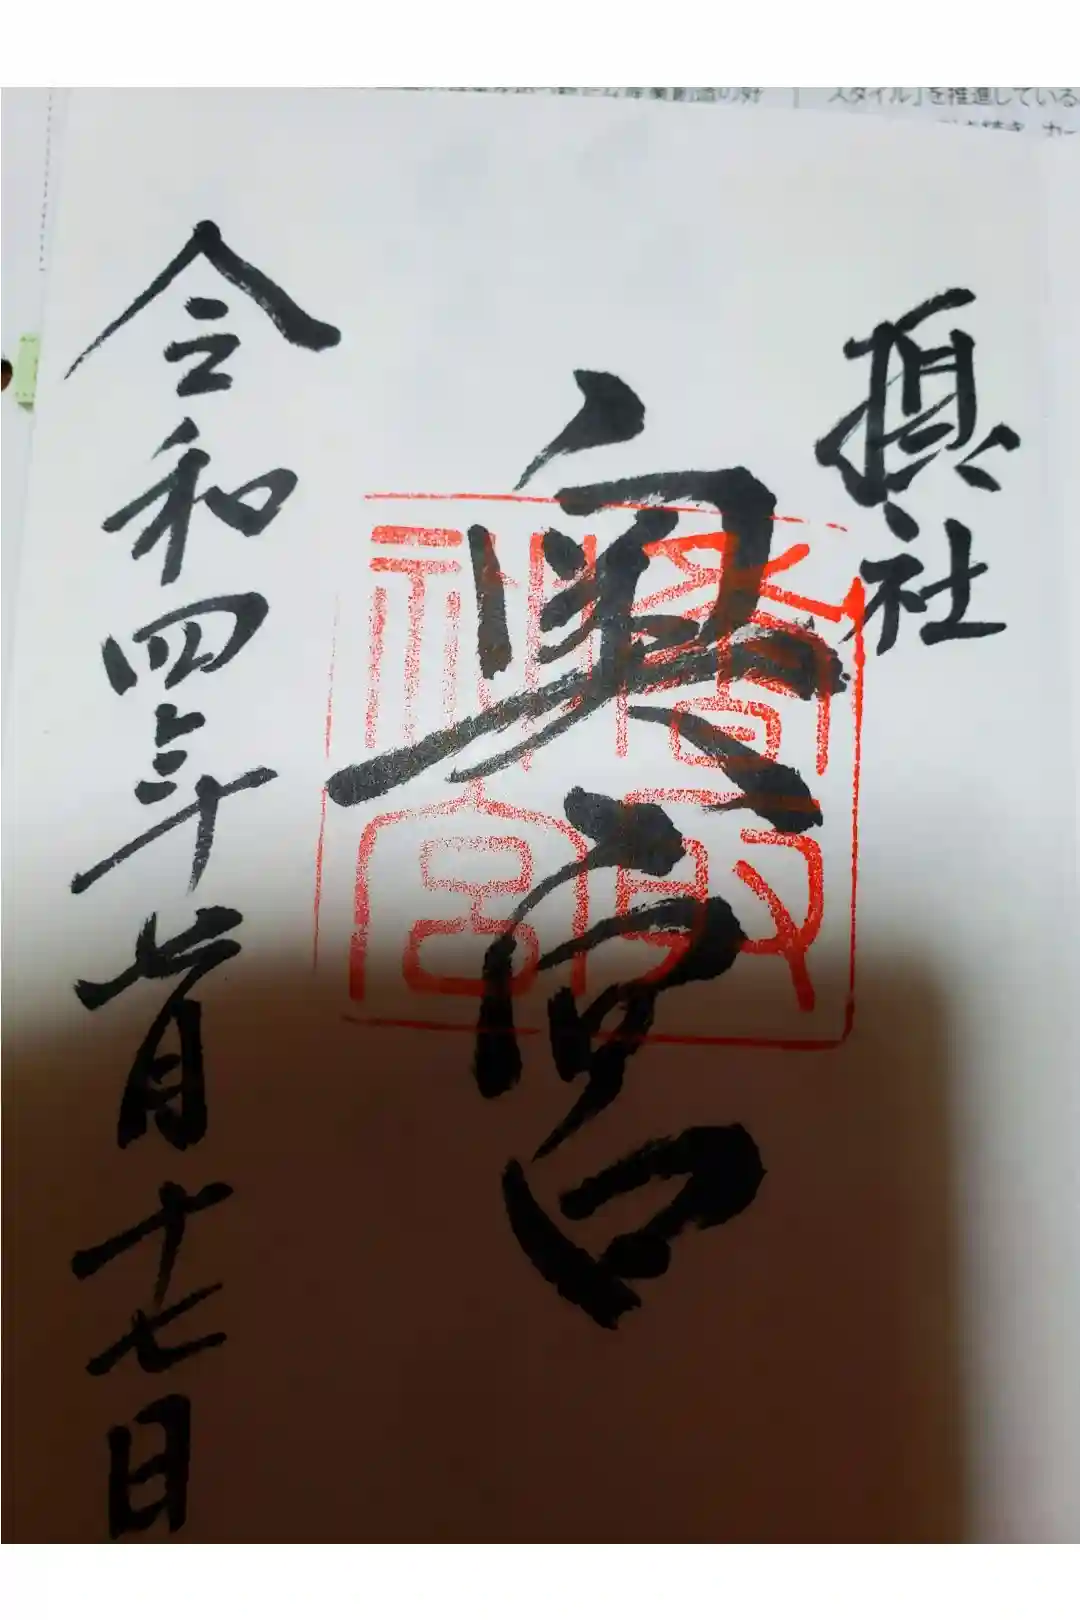 スタイル」を推進している
摂社
奥宮
香取
神宮
令和四年七月十七日